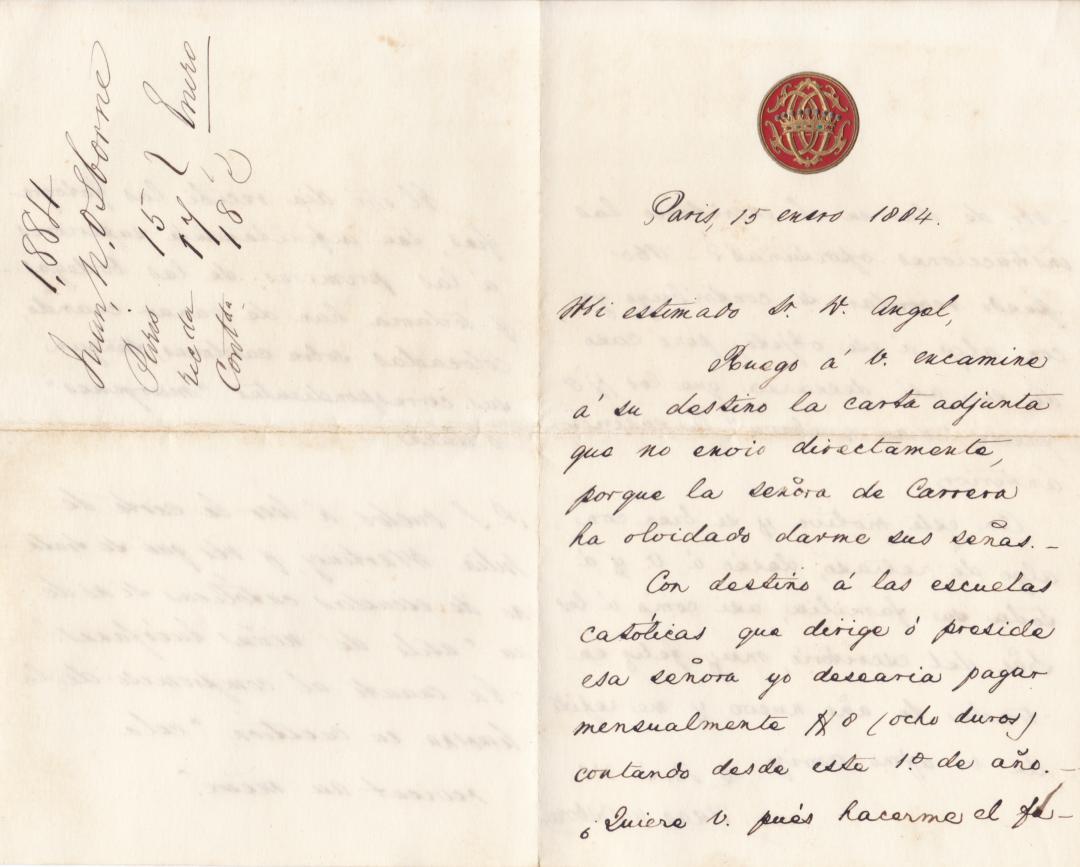 1,884
Juan N. Osborne
Paris 15
recida 17 Enero
Contda 18
Paris, 15 enero 1884.
Mi estimado Sr. D. Angel,
Ruego á V. encamine
á su destino la carta adjunta
que no envio directamente,
porque la señora de Carrera
ha olvidado darme sus señas. –
Con destino á las escuelas
católicas que dirige ó preside
esa señora yo desearia pagar
mensualmente 8 (ocho duros)
contando desde este 1.º de año. –
¿Quiere V. pués hacerme el fa–